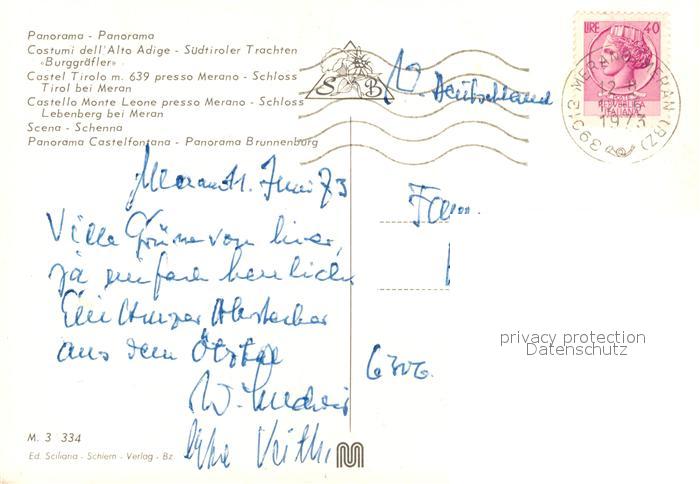 Panorama - Panorama
Costumi dell'Alto Adige - Südtiroler Trachten
«Burggräfler»
Castel Tirolo m. 639 presso Merano - Schloss
Tirol bei Meran
Castello Monte Leone presso Merano - Schloss
Lebenberg bei Meran
Scena - Schenna
Panorama Castelfontana - Panorama Brunnenburg
S B
LIRE 40
REPUBBLICA
ITALIANA
39012 MERANO MERAN (BZ)
1973
Deutschland
Meran 11. Juni 73
Viele Grüsse von hier,
ja einfach herrlich
Ein kurzer Abstecher
aus dem Ötztal
Fam.
6306
privacy protection
Datenschutz
M. 3 334
Ed. Sciliaria - Schlern - Verlag - Bz.